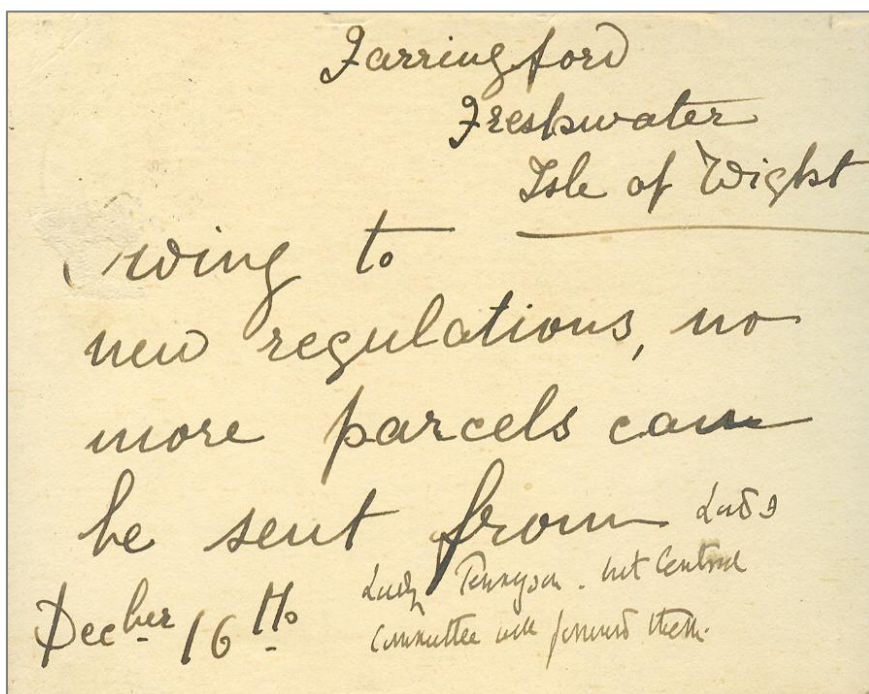 Farringford
Freshwater
Isle of Wight
wing to
new regulations, no
more parcels can
be sent from Lord &
Lady Tennyson. but Central
Decber 16th Committee will forward them.